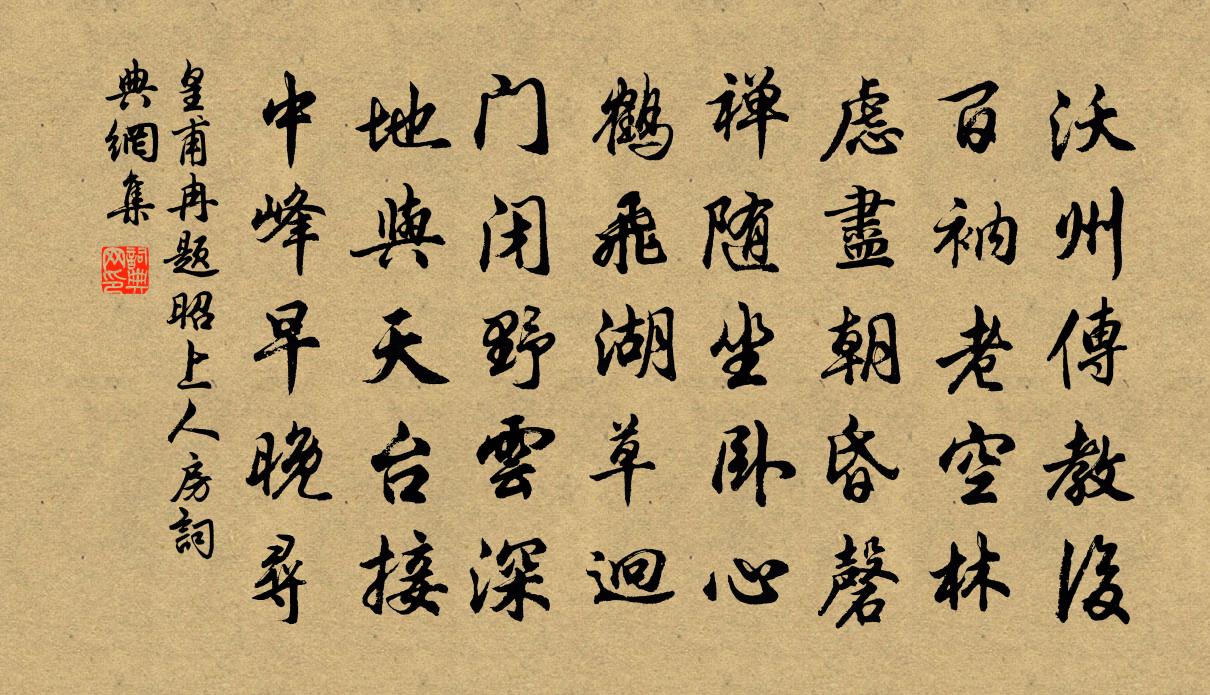 沃州傳教後
百衲老空林
慮盡朝昏磬
禅随坐卧心
鶴飛湖草迥
门闭野雲深
地與天台接
中峰早晚尋
皇甫冉題昭上人房詞
典網集
詞典
网印